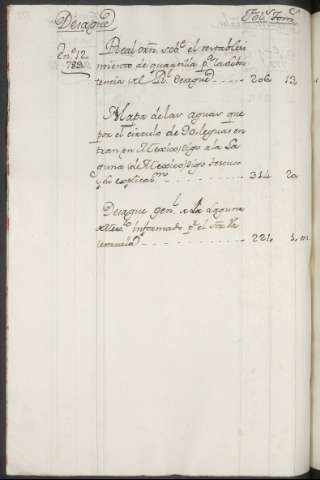 Desague Fol.s Tom.s
En.o 12 Real orñ. sob.e el restableci
789 miento de quarenta p.a la asis
tencia del R.l desague 206 12
Mapa de las aguas que
por el circulo de 90 leguas en
tran en Mexico, digo a la La
guna de Mexico, digo Tescuco
y su explicac.on 314 20
Desague gen.l de la Laguna
de Tex.co informado p.r el
221. 5.